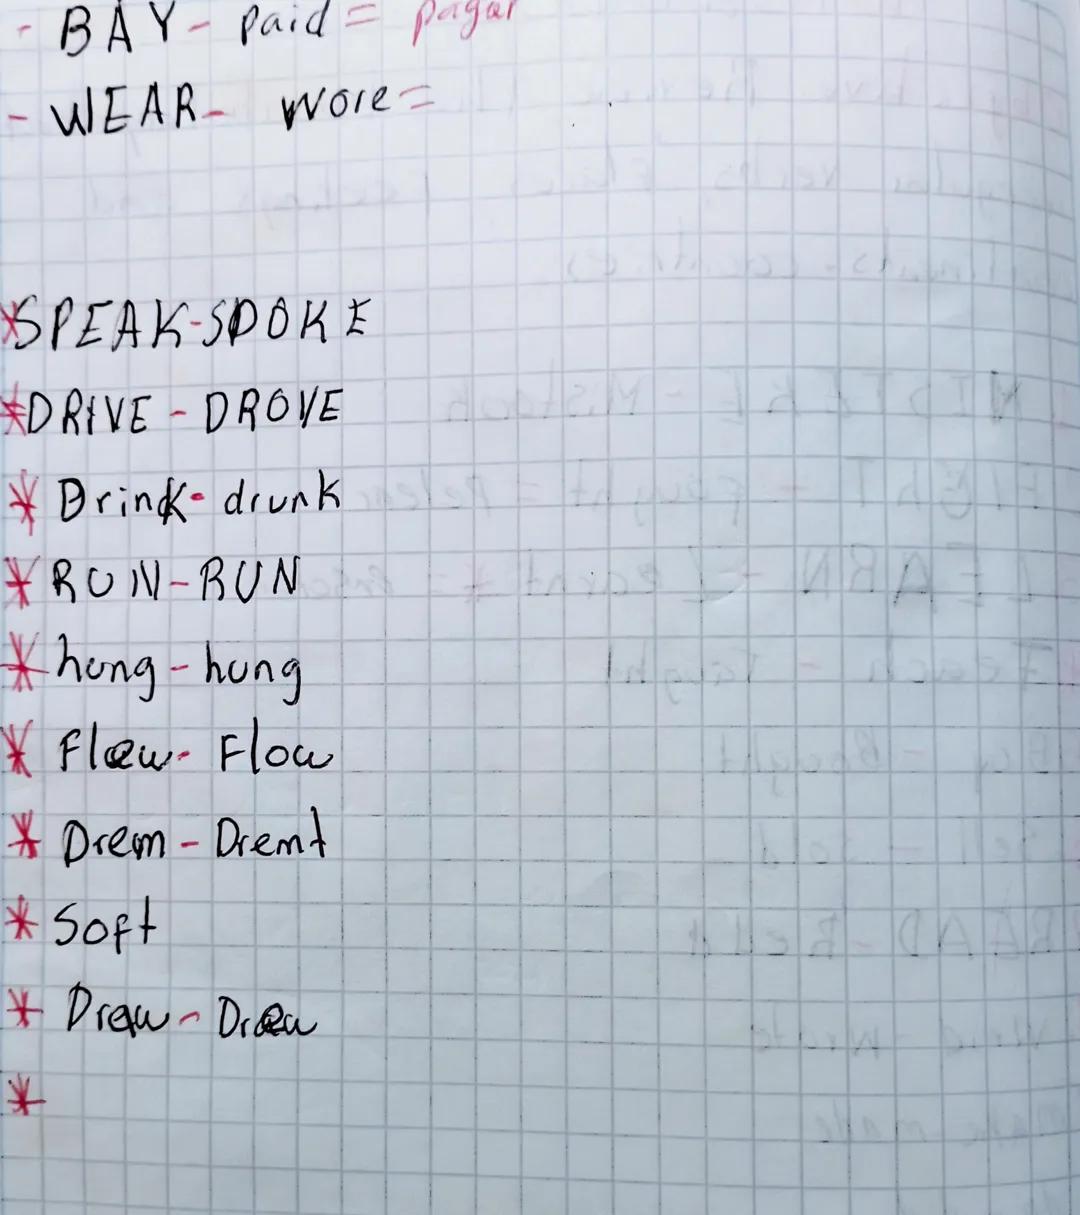 - BAY - paid = pagar
- WEAR - wore =
* SPEAK - SPOKE
* DRIVE - DROVE
* Drink - drunk
* RUN - RUN
* hung - hung
* Flew - Flow
* Drem - Dremt
* Soft
* Draw - Draw
*